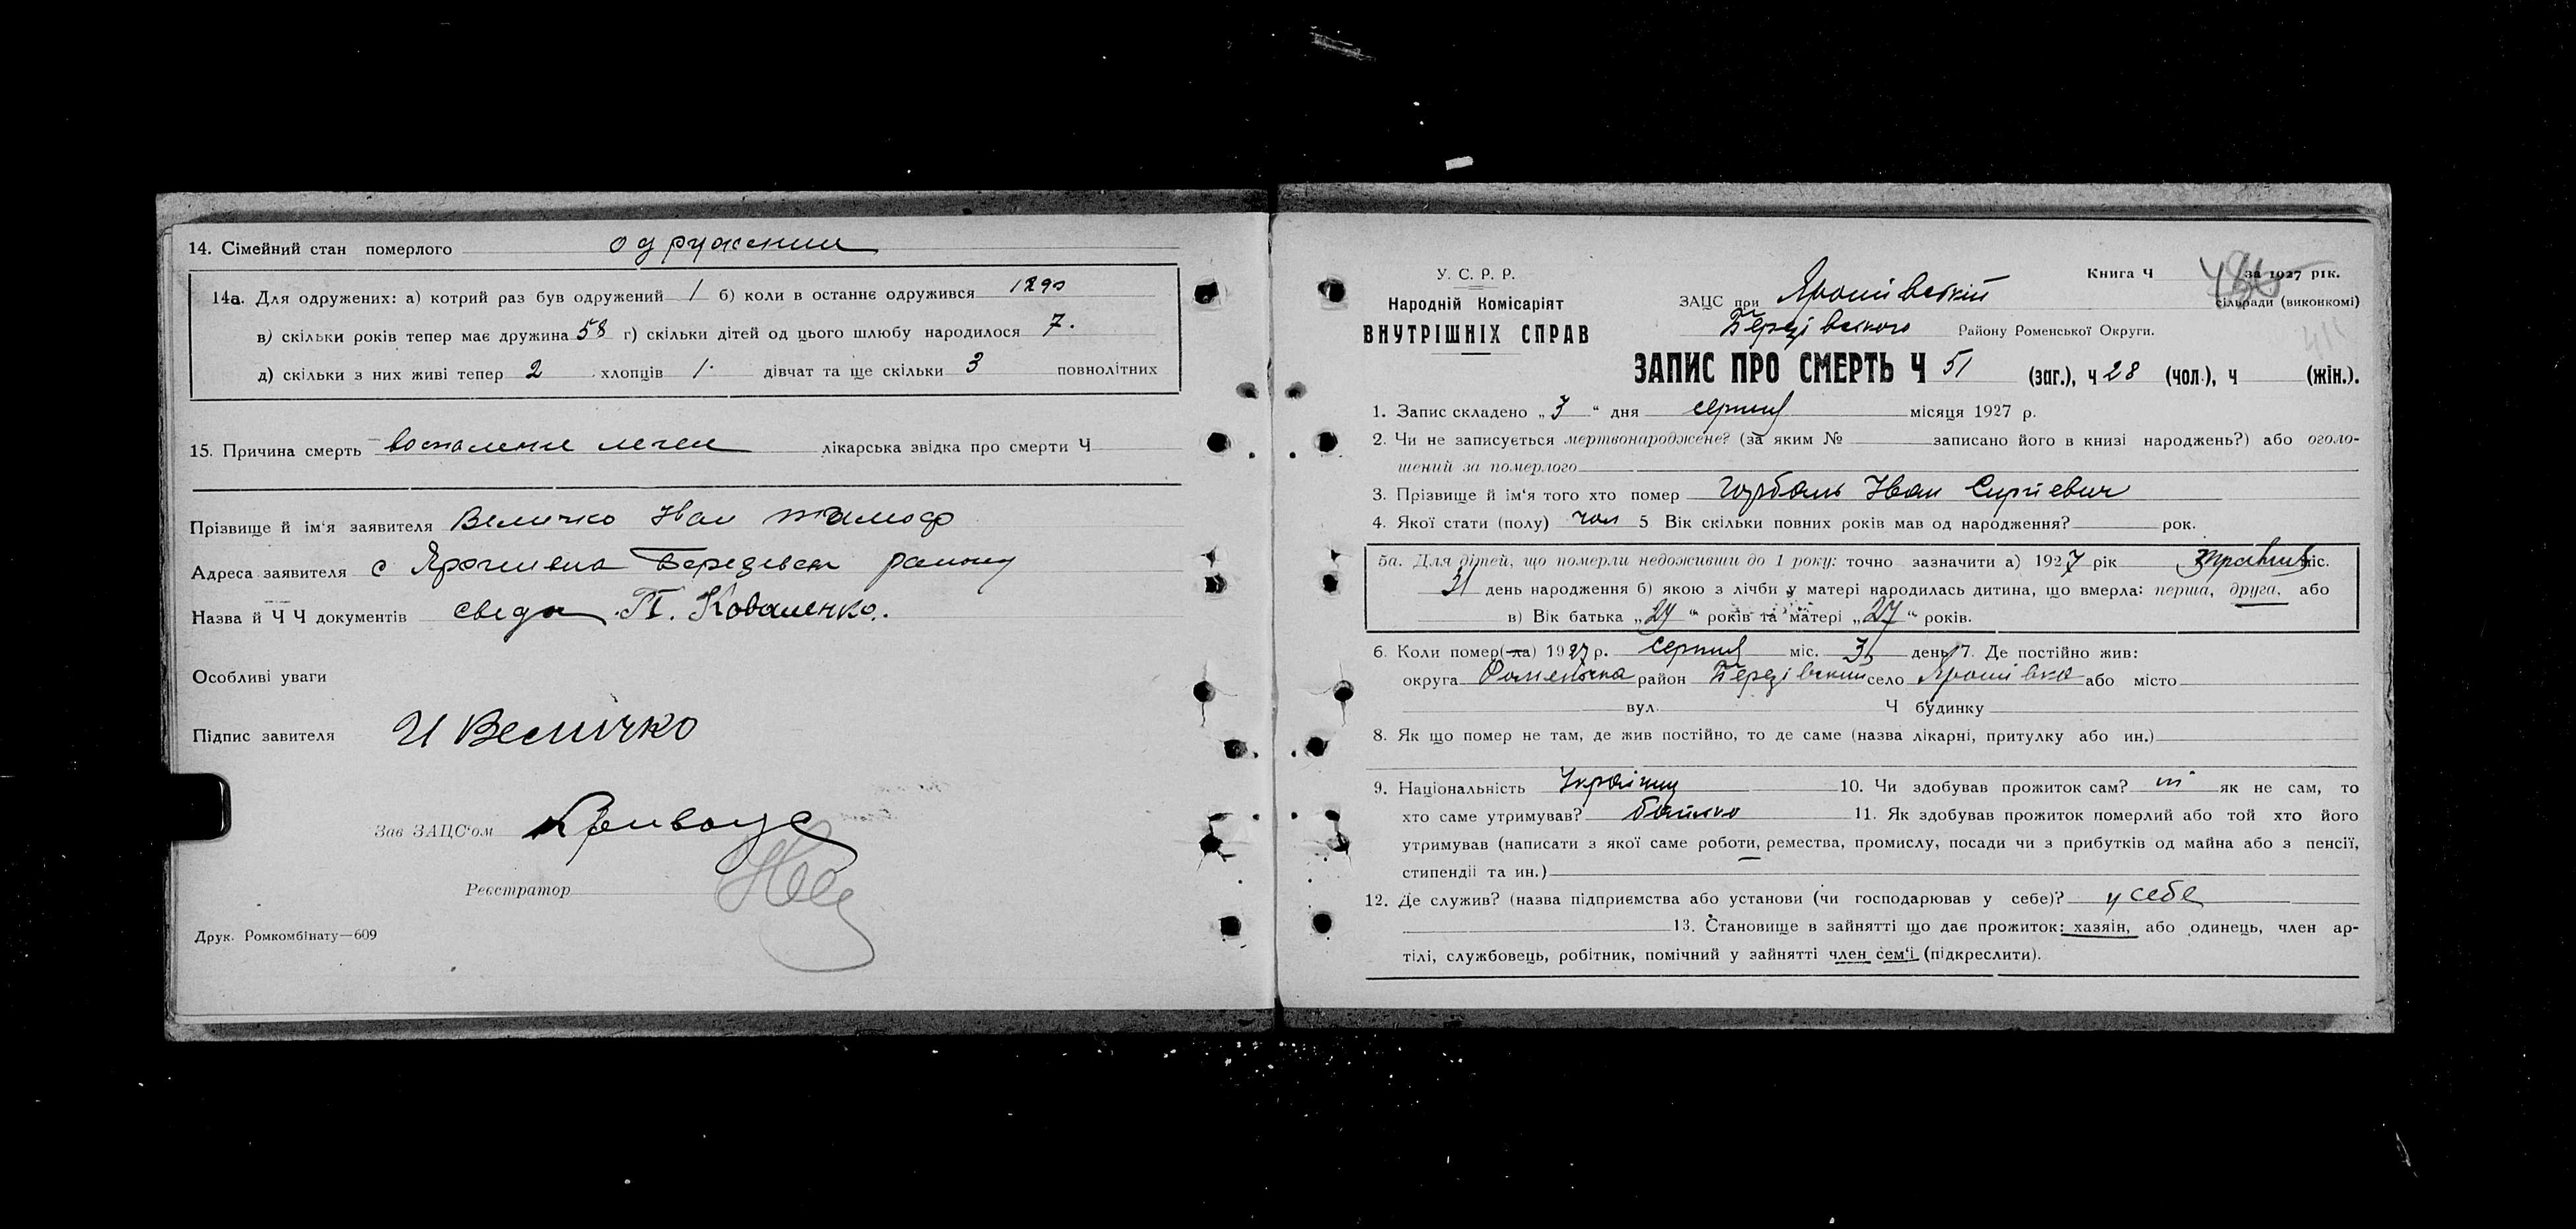 14. Сімейний стан померлого одружении
14а. Для одружених: а) котрий раз був одружений 1 б) коли в останнє одружився 1890
в) скільки років тепер має дружина 58 г) скільки дітей од цього шлюбу народилося 7.
д) скільки з них живі тепер 2 хлопців 1 дівчат та ще скільки 3 повнолітних
15. Причина смерть воспаление легеи лікарська звідка про смерти Ч
Прізвище й ім‘я заявителя Величко Иван
Адреса заявителя с Ярошивка району
Назва й Ч Ч документів П. Коваленко.
Особливі уваги
Підпис завителя И Величко
Зав ЗАЦС‘ом
Реєстратор
Друк. Ромкомбінату—609
У. С. Р. Р.
Книга Ч за 1927 рік.
Народній Комісаріят
ЗАЦС при Ярошівській сільради (виконкомі)
ВНУТРІШНІХ СПРАВ
Березівського Району Роменської Округи.
ЗАПИС ПРО СМЕРТЬ Ч 51 (заг.), ч 28 (чол.), ч (жін.).
1. Запис складено „3“ дня серпня місяця 1927 р.
2. Чи не записується мертвонароджене? (за яким № записано його в книзі народжень?) або оголо-
шений за померлого
3. Прізвище й ім‘я того хто помер Горбань Иван Сергіевич
4. Якої стати (полу) чол 5 Вік скільки повних років мав од народження? рок.
5а. Для дітей, що померли недоживши до 1 року: точно зазначити а) 1927 рік травня міс.
31 день народження б) якою з лічби у матері народилась дитина, що вмерла: перша, друга, або
в) Вік батька „27“ років та матері „27“ років.
6. Коли помер(-ла) 1927 р. серпня міс. 3 день 7. Де постійно жив:
округа Роменська район Березівский село Ярошівка або місто
вул. Ч будинку
8. Як що помер не там, де жив постійно, то де саме (назва лікарні, притулку або ин.)
9. Національність Українец 10. Чи здобував прожиток сам? ні як не сам, то
хто саме утримував? батько 11. Як здобував прожиток померлий або той хто його
утримував (написати з якої саме роботи, ремества, промислу, посади чи з прибутків од майна або з пенсії,
стипендії та ин.)
12. Де служив? (назва підприємства або установи (чи господарював у себе)? у себе
13. Становище в зайнятті що дає прожиток: хазяін, або одинець, член ар-
тілі, службовець, робітник, помічний у зайнятті член сем‘і (підкреслити).